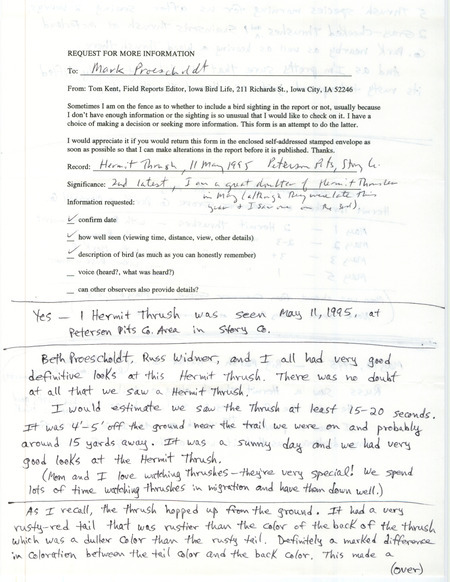 REQUEST FOR MORE INFORMATION
To: Mark Proescholdt
From: Tom Kent, Field Reports Editor, Iowa Bird Life, 211 Richards St., Iowa City, IA 52246
Sometimes I am on the fence as to whether to include a bird sighting in the report or not, usually because
I don't have enough information or the sighting is so unusual that I would like to check on it. I have a
choice of making a decision or seeking more information. This form is an attempt to do the latter.
I would appreciate it if you would return this form in the enclosed self-addressed stamped envelope as
soon as possible so that I can make alterations in the report before it is published. Thanks.
Record: Hermit Thrush, 11 May 1995 Peterson Pits, Story Co.
Significance: 2nd latest, I am a great doubter of Hermit Thrushes
in May (although they were late this
year & I saw one on the 3rd).
Information requested:
✓ confirm date
✓ how well seen (viewing time, distance, view, other details)
✓ description of bird (as much as you can honestly remember)
voice (heard?, what was heard?)
can other observors also provide details?
Yes – 1 Hermit Thrush was seen May 11, 1995, at
Peterson Pits Co. Area in Story Co.
Beth Proescholdt, Russ Widner, and I all had very good
definitive looks at this Hermit Thrush. There was no doubt
at all that we saw a Hermit Thrush.
I would estimate we saw the Thrush at least 15-20 seconds.
It was 4'-5' off the ground near the trail we were on and probably
around 15 yards away. It was a sunny day and we had very
good looks at the Hermit Thrush.
(Mom and I love watching Thrushes – they're very special! We spend
lots of time watching thrushes in migration and have them down well.)
As I recall, the thrush hopped up from the ground. It had a very
rusty-red tail that was rustier than the color of the back of the thrush
which was a duller color than the rusty tail. Definitely a marked difference
in coloration between the tail color and the back color. This made a
(over)